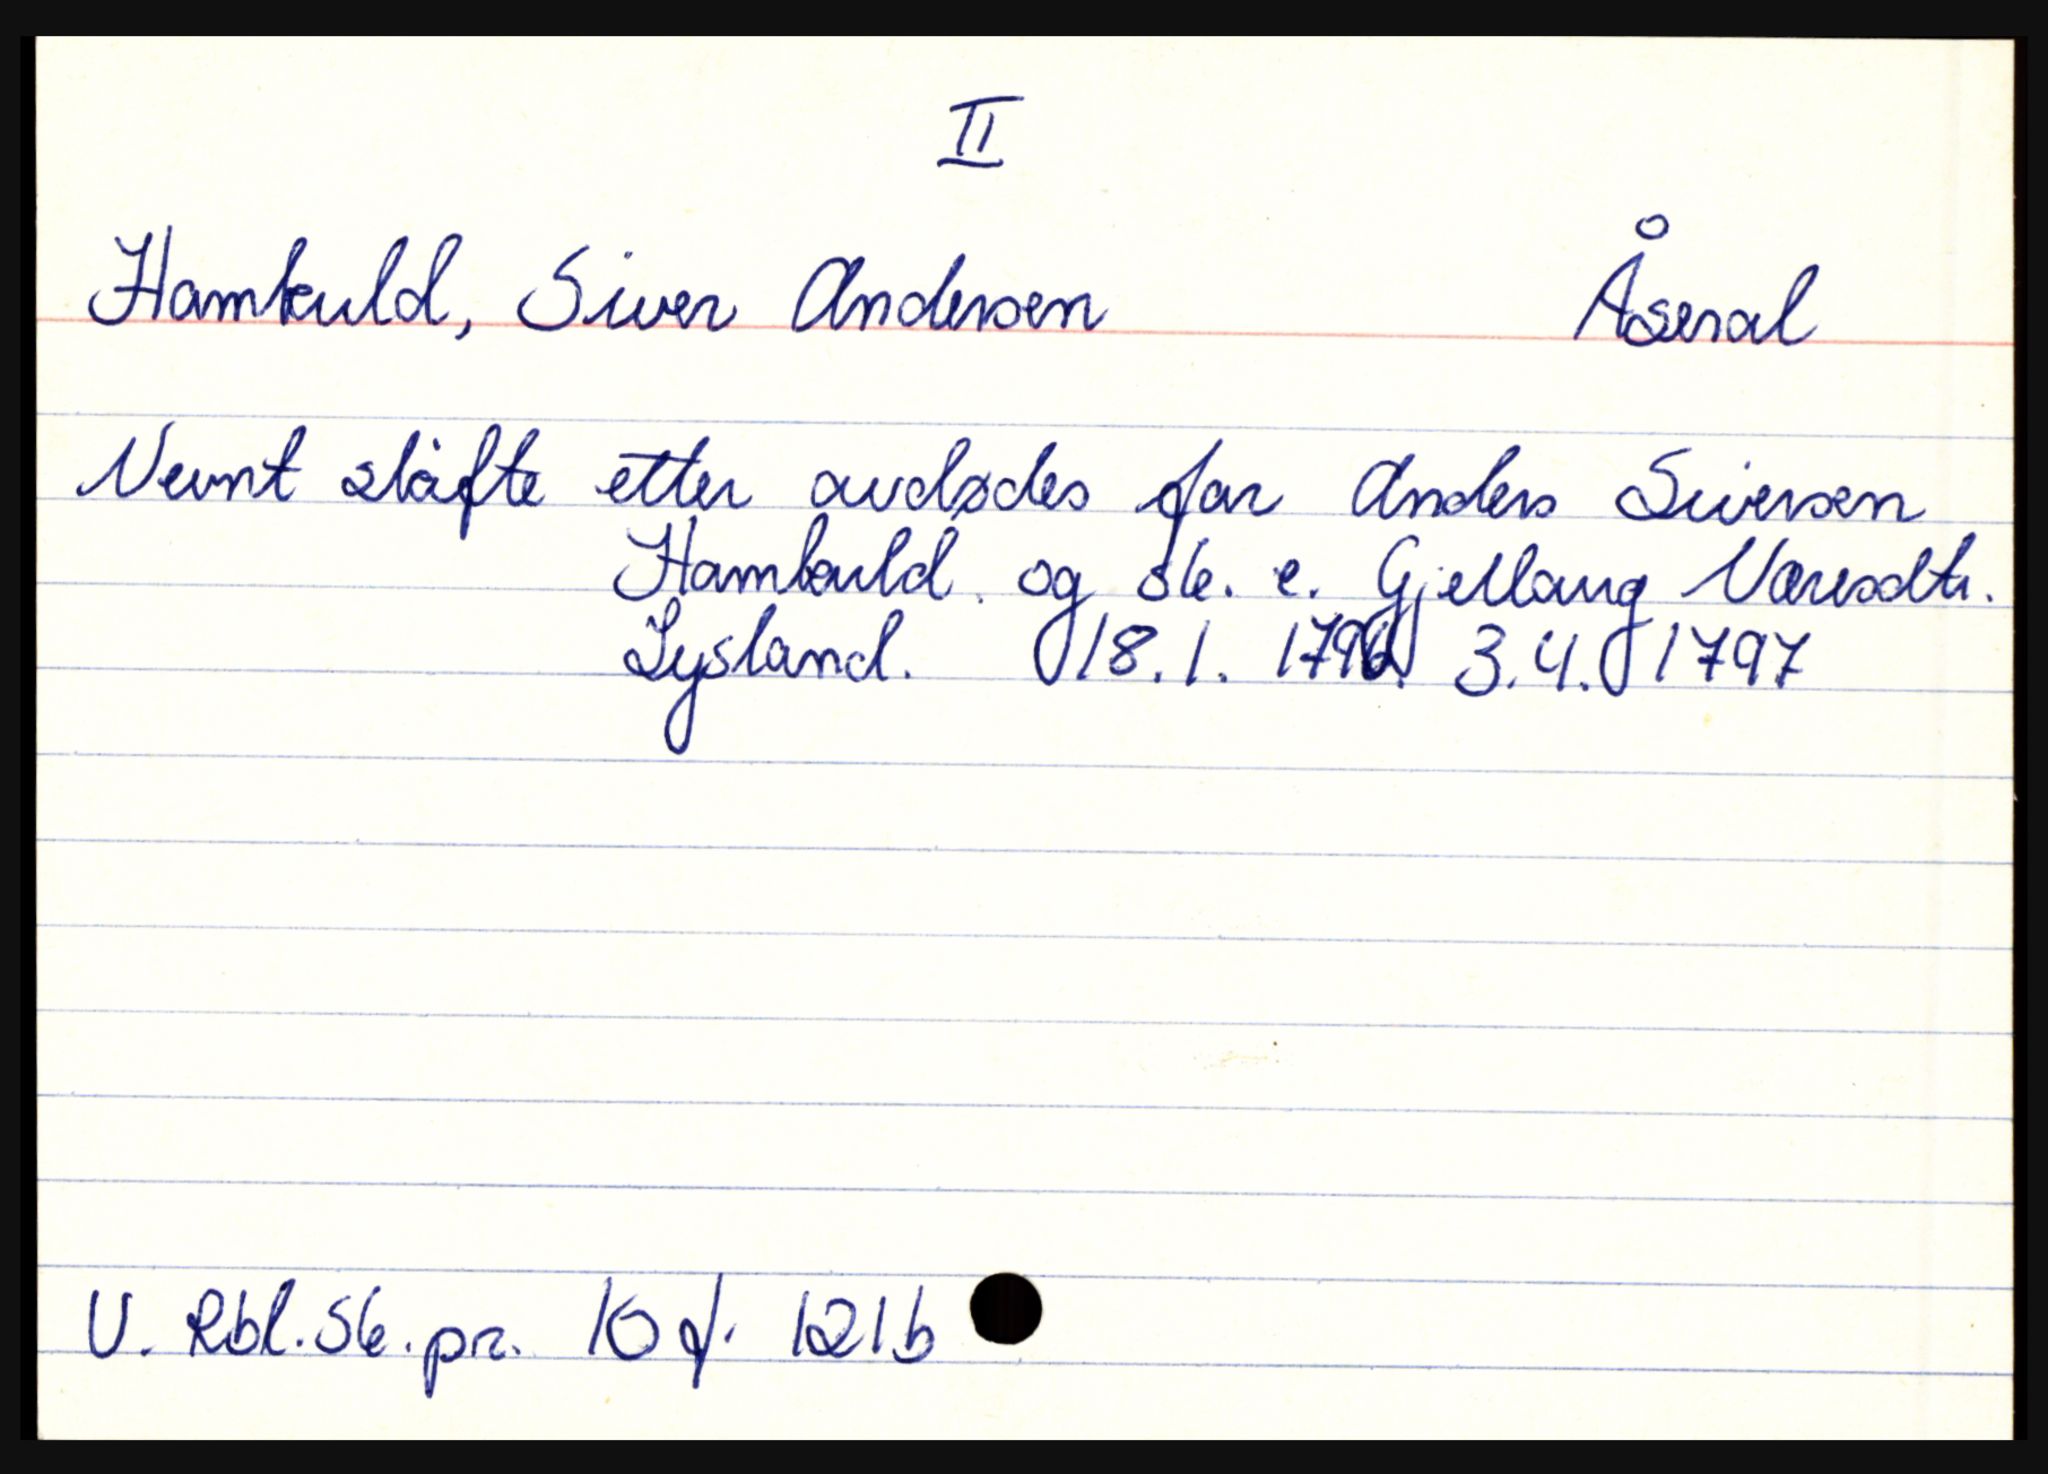 II
Hamkuld, Siver Andersen Åseral
Nevnt skifte etter avdødes far Anders Siversen
Hamkuld og sk. e. Gjellaug
Lysland. 18.1. 1796. 3.4. 1797
V. Rbl. Sk. pr. 10 f. 121b